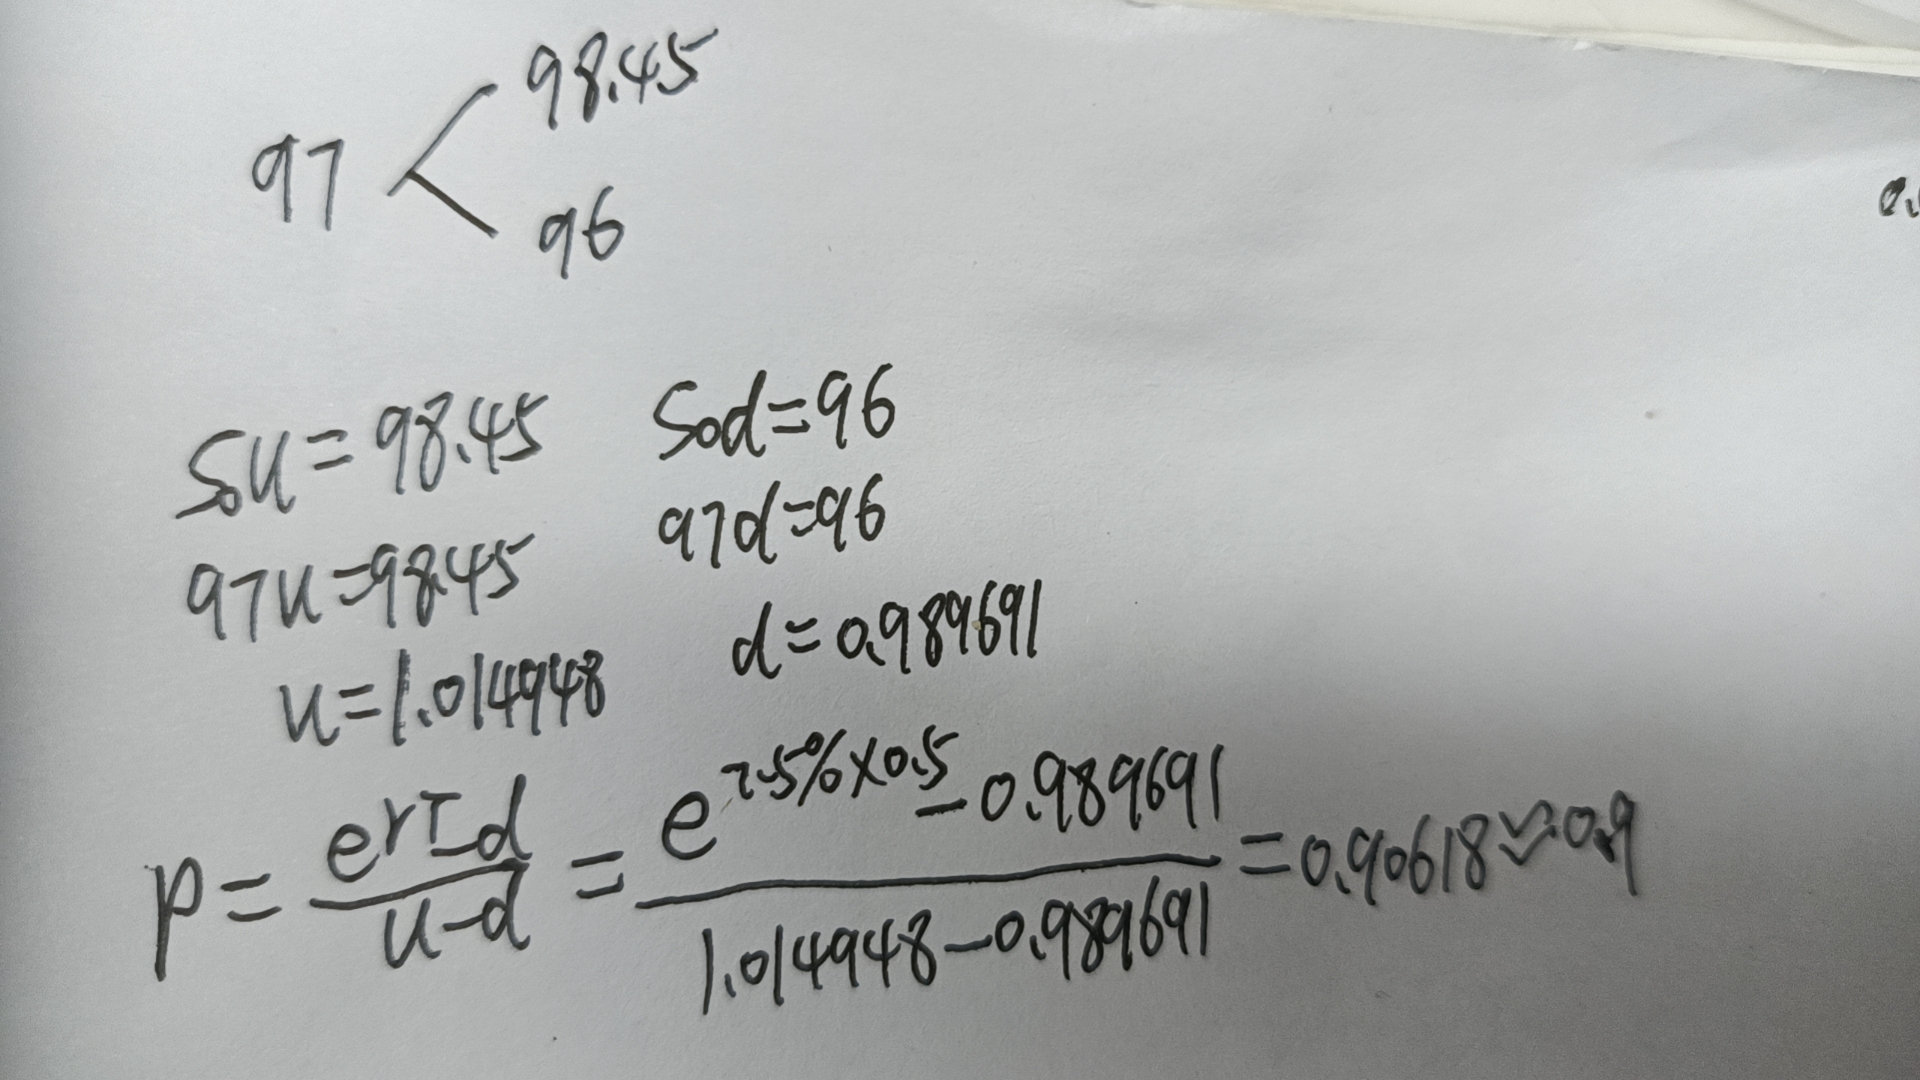 98.45
97 <
96
S₀u=98.45 S₀d=96
97u=98.45 97d=96
u=1.014948 d=0.989691
p = (e^{rT}-d)/(u-d) = (e^{2.5%×0.5}-0.989691)/(1.014948-0.989691) = 0.90618≈0.9